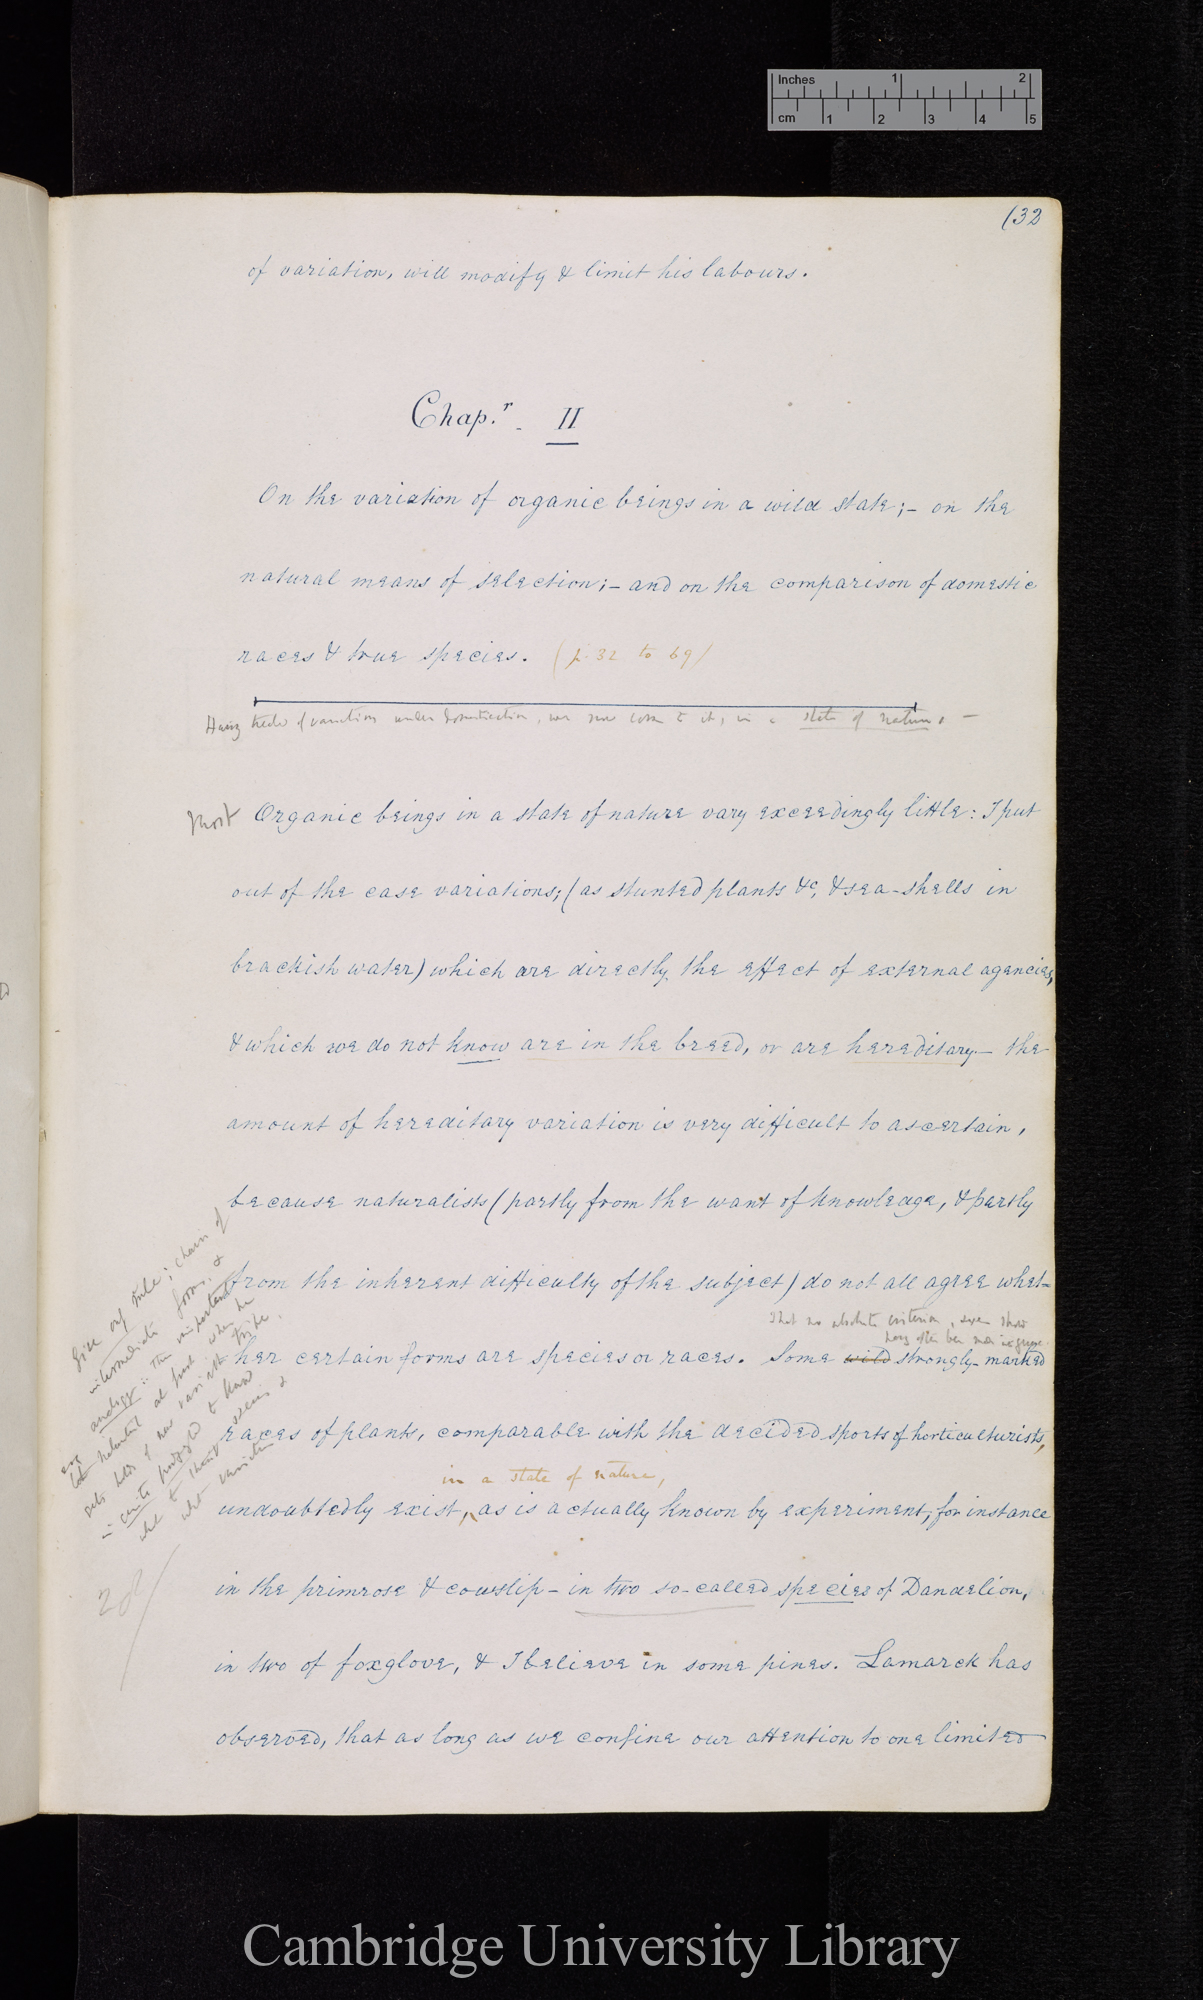 Inches 1 2
cm 1 2 3 4 5
(32
of variation, will modify & limit his labours.
Chap.r II
On the variation of organic beings in a wild state;– on the
natural means of selection;– and on the comparison of domestic
races & true species. (p. 32 to 69)
Having treated of variation under domestication, we now come to it, in a state of nature. –
Most Organic beings in a state of nature vary exceedingly little: I put
out of the case variations; (as stunted plants &c, & sea-shells in
brackish water) which are directly the effect of external agencies,
& which we do not know are in the breed, or are hereditary.– the
amount of hereditary variation is very difficult to ascertain,
because naturalists (partly from the want of knowledge, & partly
from the inherent difficulty of the subject) do not all agree whet=
That no absolute criterion,
her certain forms are species or races. Some wild strongly-marked
races of plants, comparable with the decided sports of horticulturists,
in a state of nature,
undoubtedly exist, as is actually known by experiment, for instance
in the primrose & cowslip – in two so-called species of Dandelion,
in two of foxglove, & I believe in some pines. Lamarck has
observed, that as long as we confine our attention to one limited
Give my rule; chain of
intermediate forms, &
analogy: this important
naturalist at first when he
gets hold of new variable tribe,
is quite puzzled to know
what to think species &
what varieties
28/
Cambridge University Library